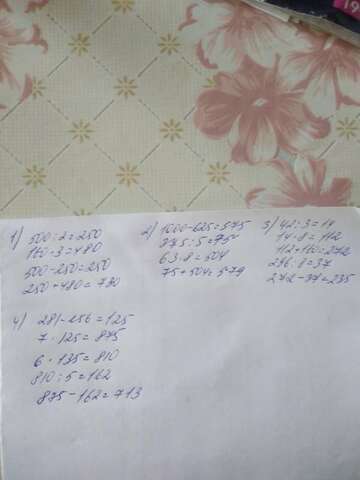 1) 500:2=250
160·3=480
500-250=250
250+480=730
2) 1000-625=375
375:5=75
63·8=504
75+504=579
3) 42:3=14
14·8=112
112+160=272
296:8=37
272-37=235
4) 281-156=125
7·125=875
6·135=810
810:5=162
875-162=713
19